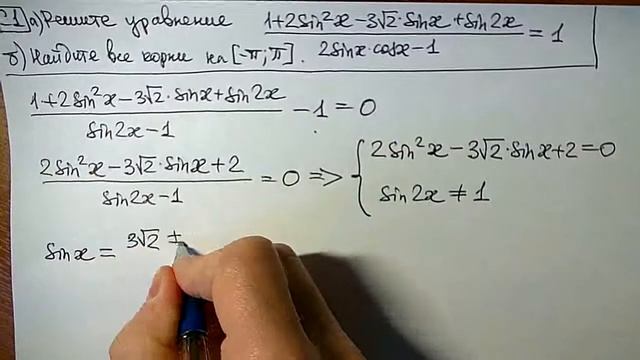 C1 а) Решите уравнение (1+2sin²x−3√2·sinx+sin2x)/(2sinx·cosx−1) = 1
б) Найдите все корни на [-π; π].
(1+2sin²x−3√2·sinx+sin2x)/(sin2x−1) − 1 = 0
(2sin²x−3√2·sinx+2)/(sin2x−1) = 0 => { 2sin²x−3√2·sinx+2=0
sin2x ≠ 1
sinx = 3√2 ±